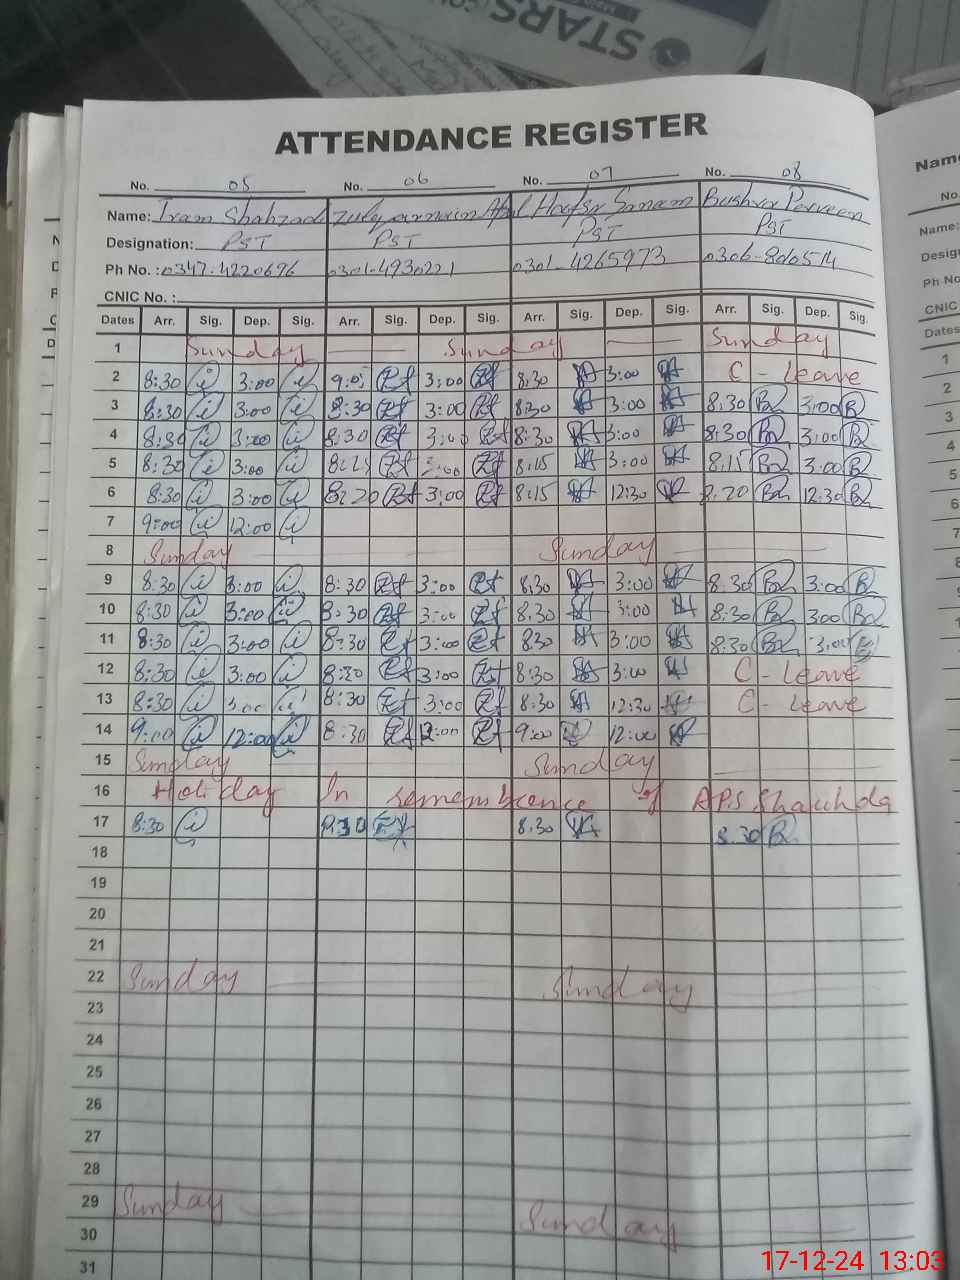 STARS
ATTENDANCE REGISTER
No. 05 No. 06 No. 07 No. 08
Name: Iram Shahzad Hafsa Sanam Bushra Perveen
Designation: PST PST PST PST
Ph No.: 0347-4220696 0301-4930221 0301-4265973 0306-8606514
CNIC No.:
Dates Arr. Sig. Dep. Sig. Arr. Sig. Dep. Sig. Arr. Sig. Dep. Sig. Arr. Sig. Dep. Sig.
1 Sunday Sunday Sunday
2 8:30 3:00 9:05 3:00 8:30 3:00 C-Leave
3 8:30 3:00 8:30 3:00 8:30 3:00 8:30 3:00
4 8:30 3:00 8:30 3:00 8:30 3:00 8:30 3:00
5 8:30 3:00 3:00 8:15 3:00 8:15 3:00
6 8:30 3:00 8:20 3:00 8:15 12:30 8:20 12:30
7 9:00 12:00
8 Sunday Sunday
9 8:30 3:00 8:30 3:00 8:30 3:00 8:30 3:00
10 8:30 3:00 8:30 3:00 8:30 3:00 8:30 3:00
11 8:30 3:00 8:30 3:00 8:30 3:00 8:30 3:00
12 8:30 3:00 8:30 3:00 8:30 3:00 C-Leave
13 8:30 3:00 8:30 3:00 8:30 12:30 C-Leave
14 9:00 12:00 8:30 12:00 9:00 12:00
15 Sunday Sunday
16 Holiday In remembrance of A.P.S Shauhda
17 8:30 8:30 8:30 8:30
18
19
20
21
22 Sunday Sunday
23
24
25
26
27
28
29 Sunday Sunday
30
31
Name
No.
Name:
Desig
Ph No
CNIC
Dates
1
2
3
4
5
6
7
17-12-24 13:03